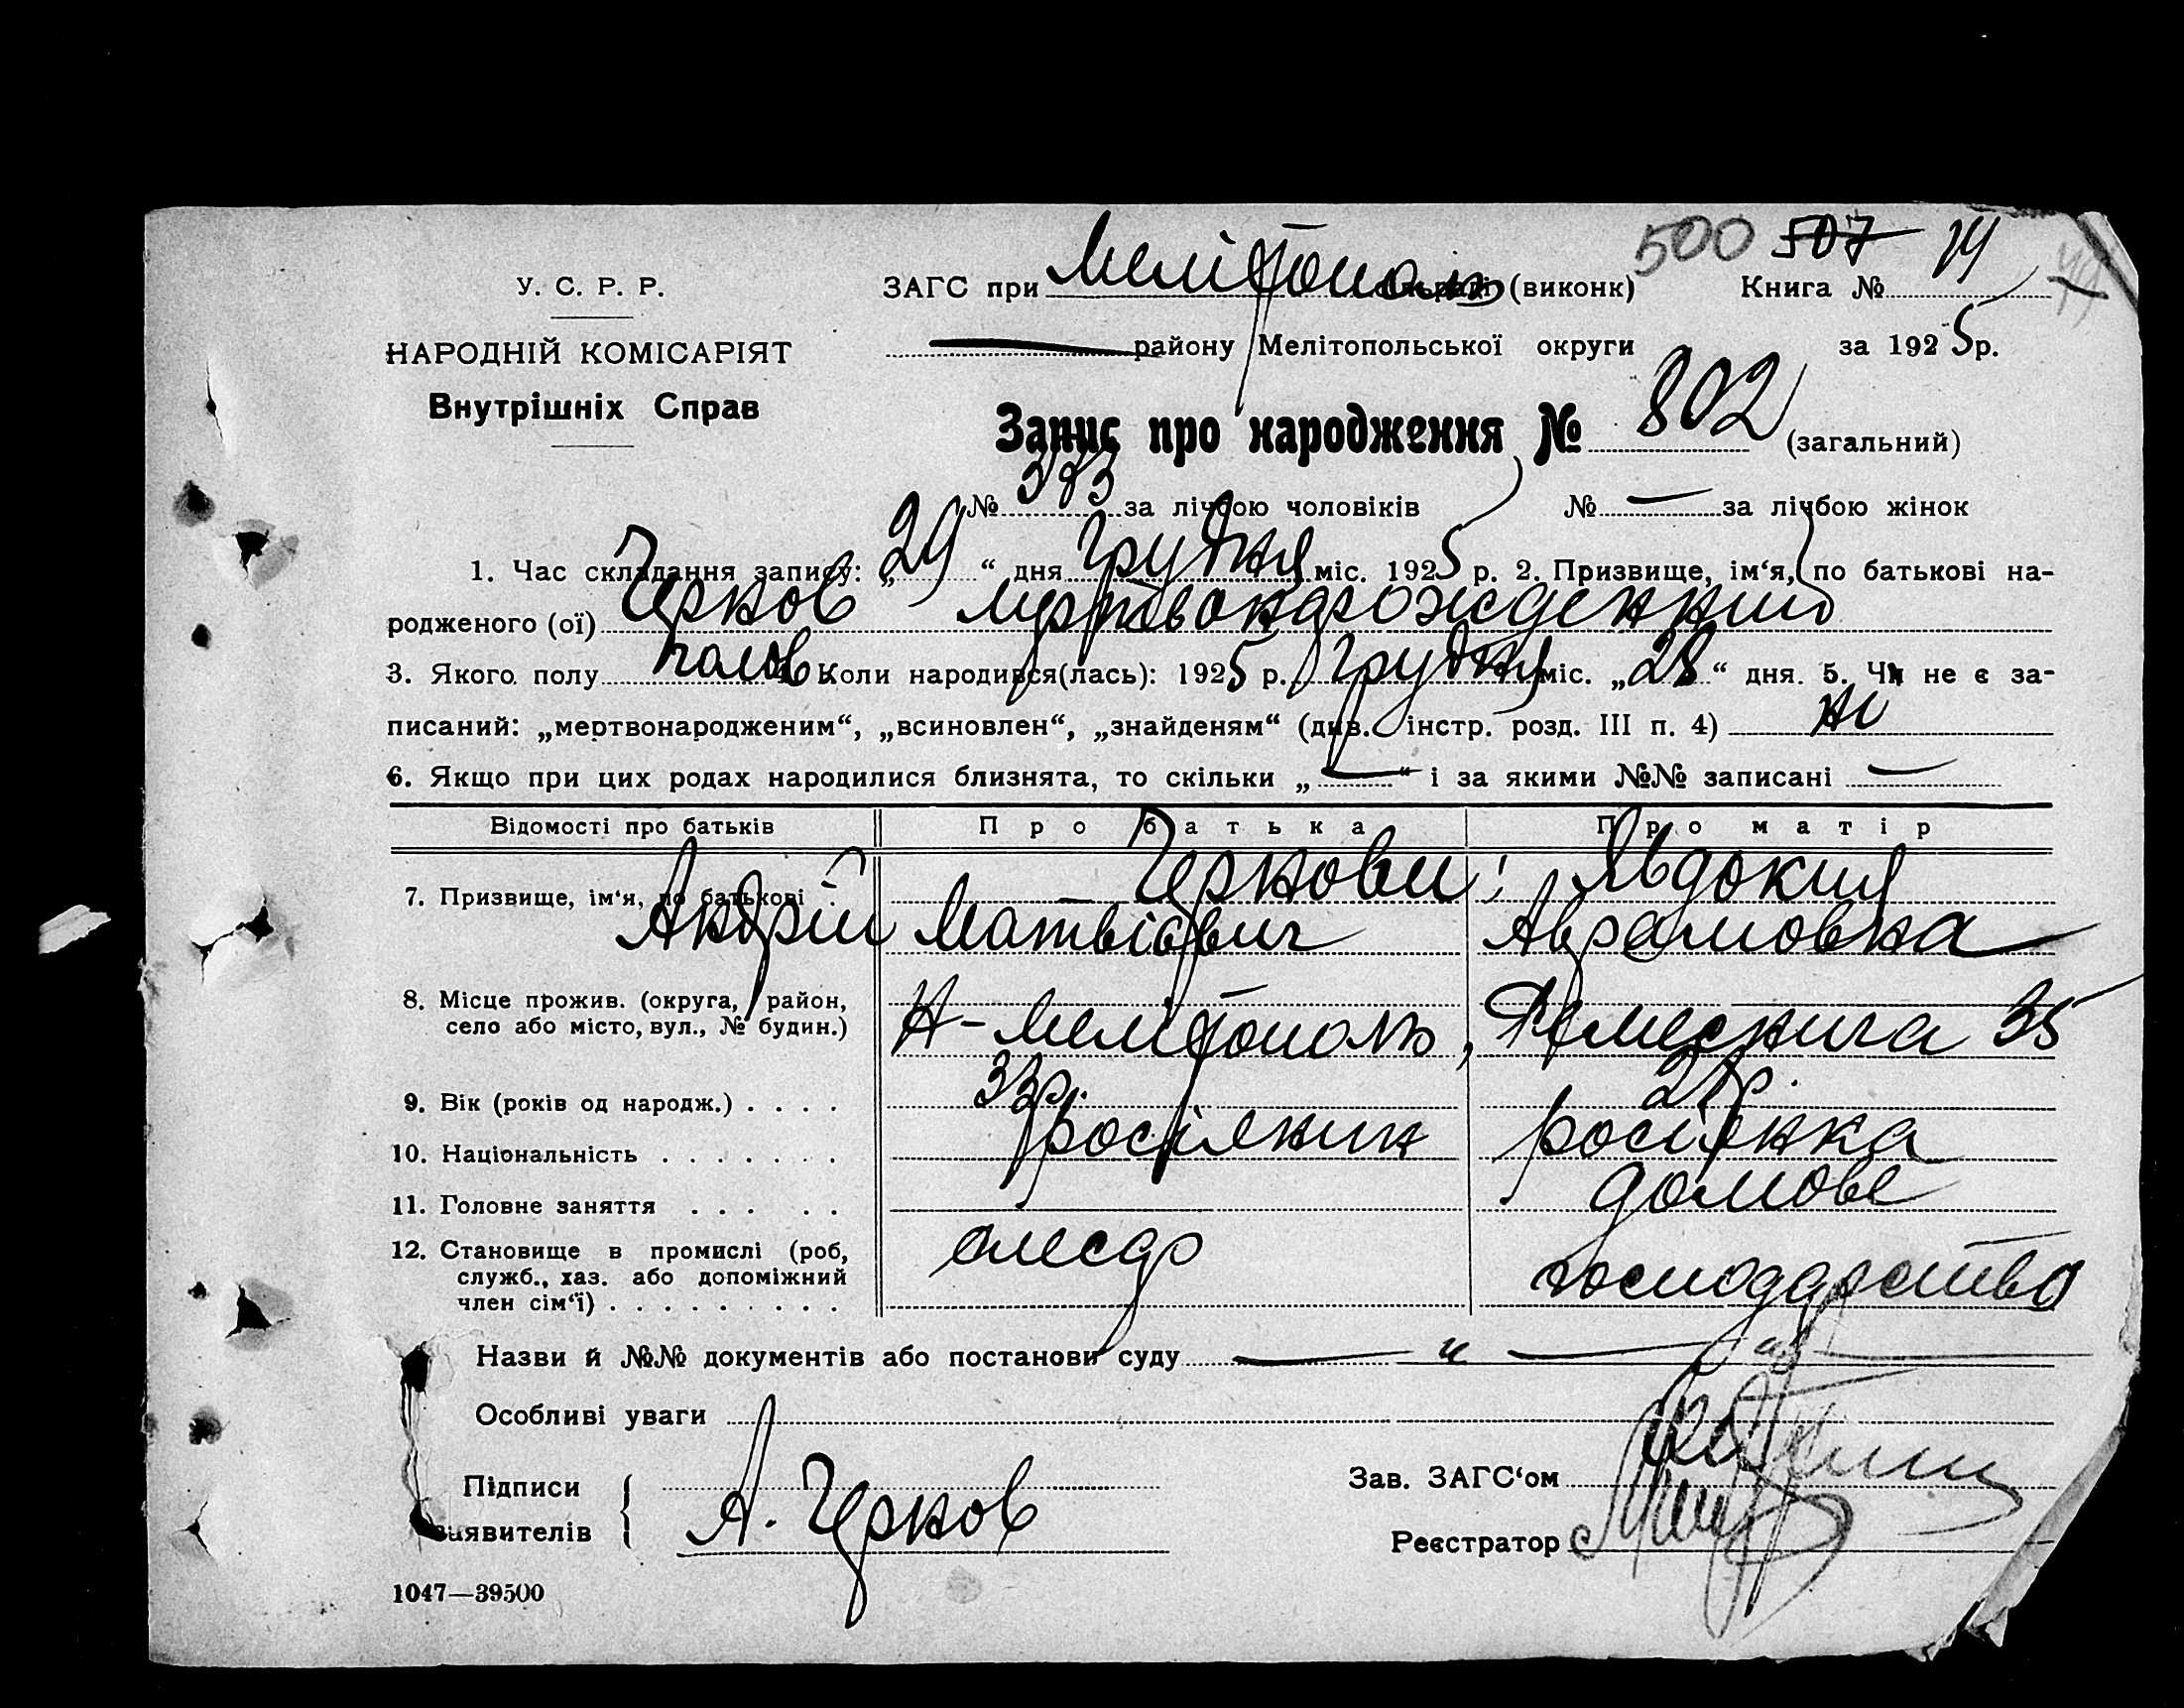 500 507 14
У. С. Р. Р. ЗАГС при Мелітополь (виконк) Книга №
НАРОДНІЙ КОМІСАРІЯТ району Мелітопольської округи за 1925 р.
Внутрішніх Справ
Запис про народження № 802 (загальний)
№ 383 за лічбою чоловіків № — за лічбою жінок
1. Час складання запису: „29“ дня Грудня міс. 1925 р. 2. Призвище, ім‘я, по батькові на-
родженого (ої) Церков мертвонарожденний
3. Якого полу чолов 4. Коли народився(лась): 1925 р. Грудня міс. „28“ дня. 5. Чи не є за-
писаний: „мертвонародженим“, „всиновлен“, „знайденям“ (див. інстр. розд. III п. 4) ні
6. Якщо при цих родах народилися близнята, то скільки „—“ і за якими №№ записані —
Відомості про батьків Про батька Про матір
7. Призвище, ім‘я, по батькові Церкови: Явдокия
Андрій Матвієвич Аврамовна
8. Місце прожив. (округа, район,
село або місто, вул., № будин.) Н-Мелітополь, 35
9. Вік (років од народж.) . . . . 33 р. 28 р.
10. Національність . . . . . . . росіянин росіянка
11. Головне заняття . . . . . домове
12. Становище в промислі (роб, слесар господарство
служб., хаз. або допоміжний
член сім‘ї) . . . . . . . . .
Назви й №№ документів або постанови суду — " — "
Особливі уваги
Підписи Зав. ЗАГС‘ом
заявителів А. Церков Реєстратор
1047—39500